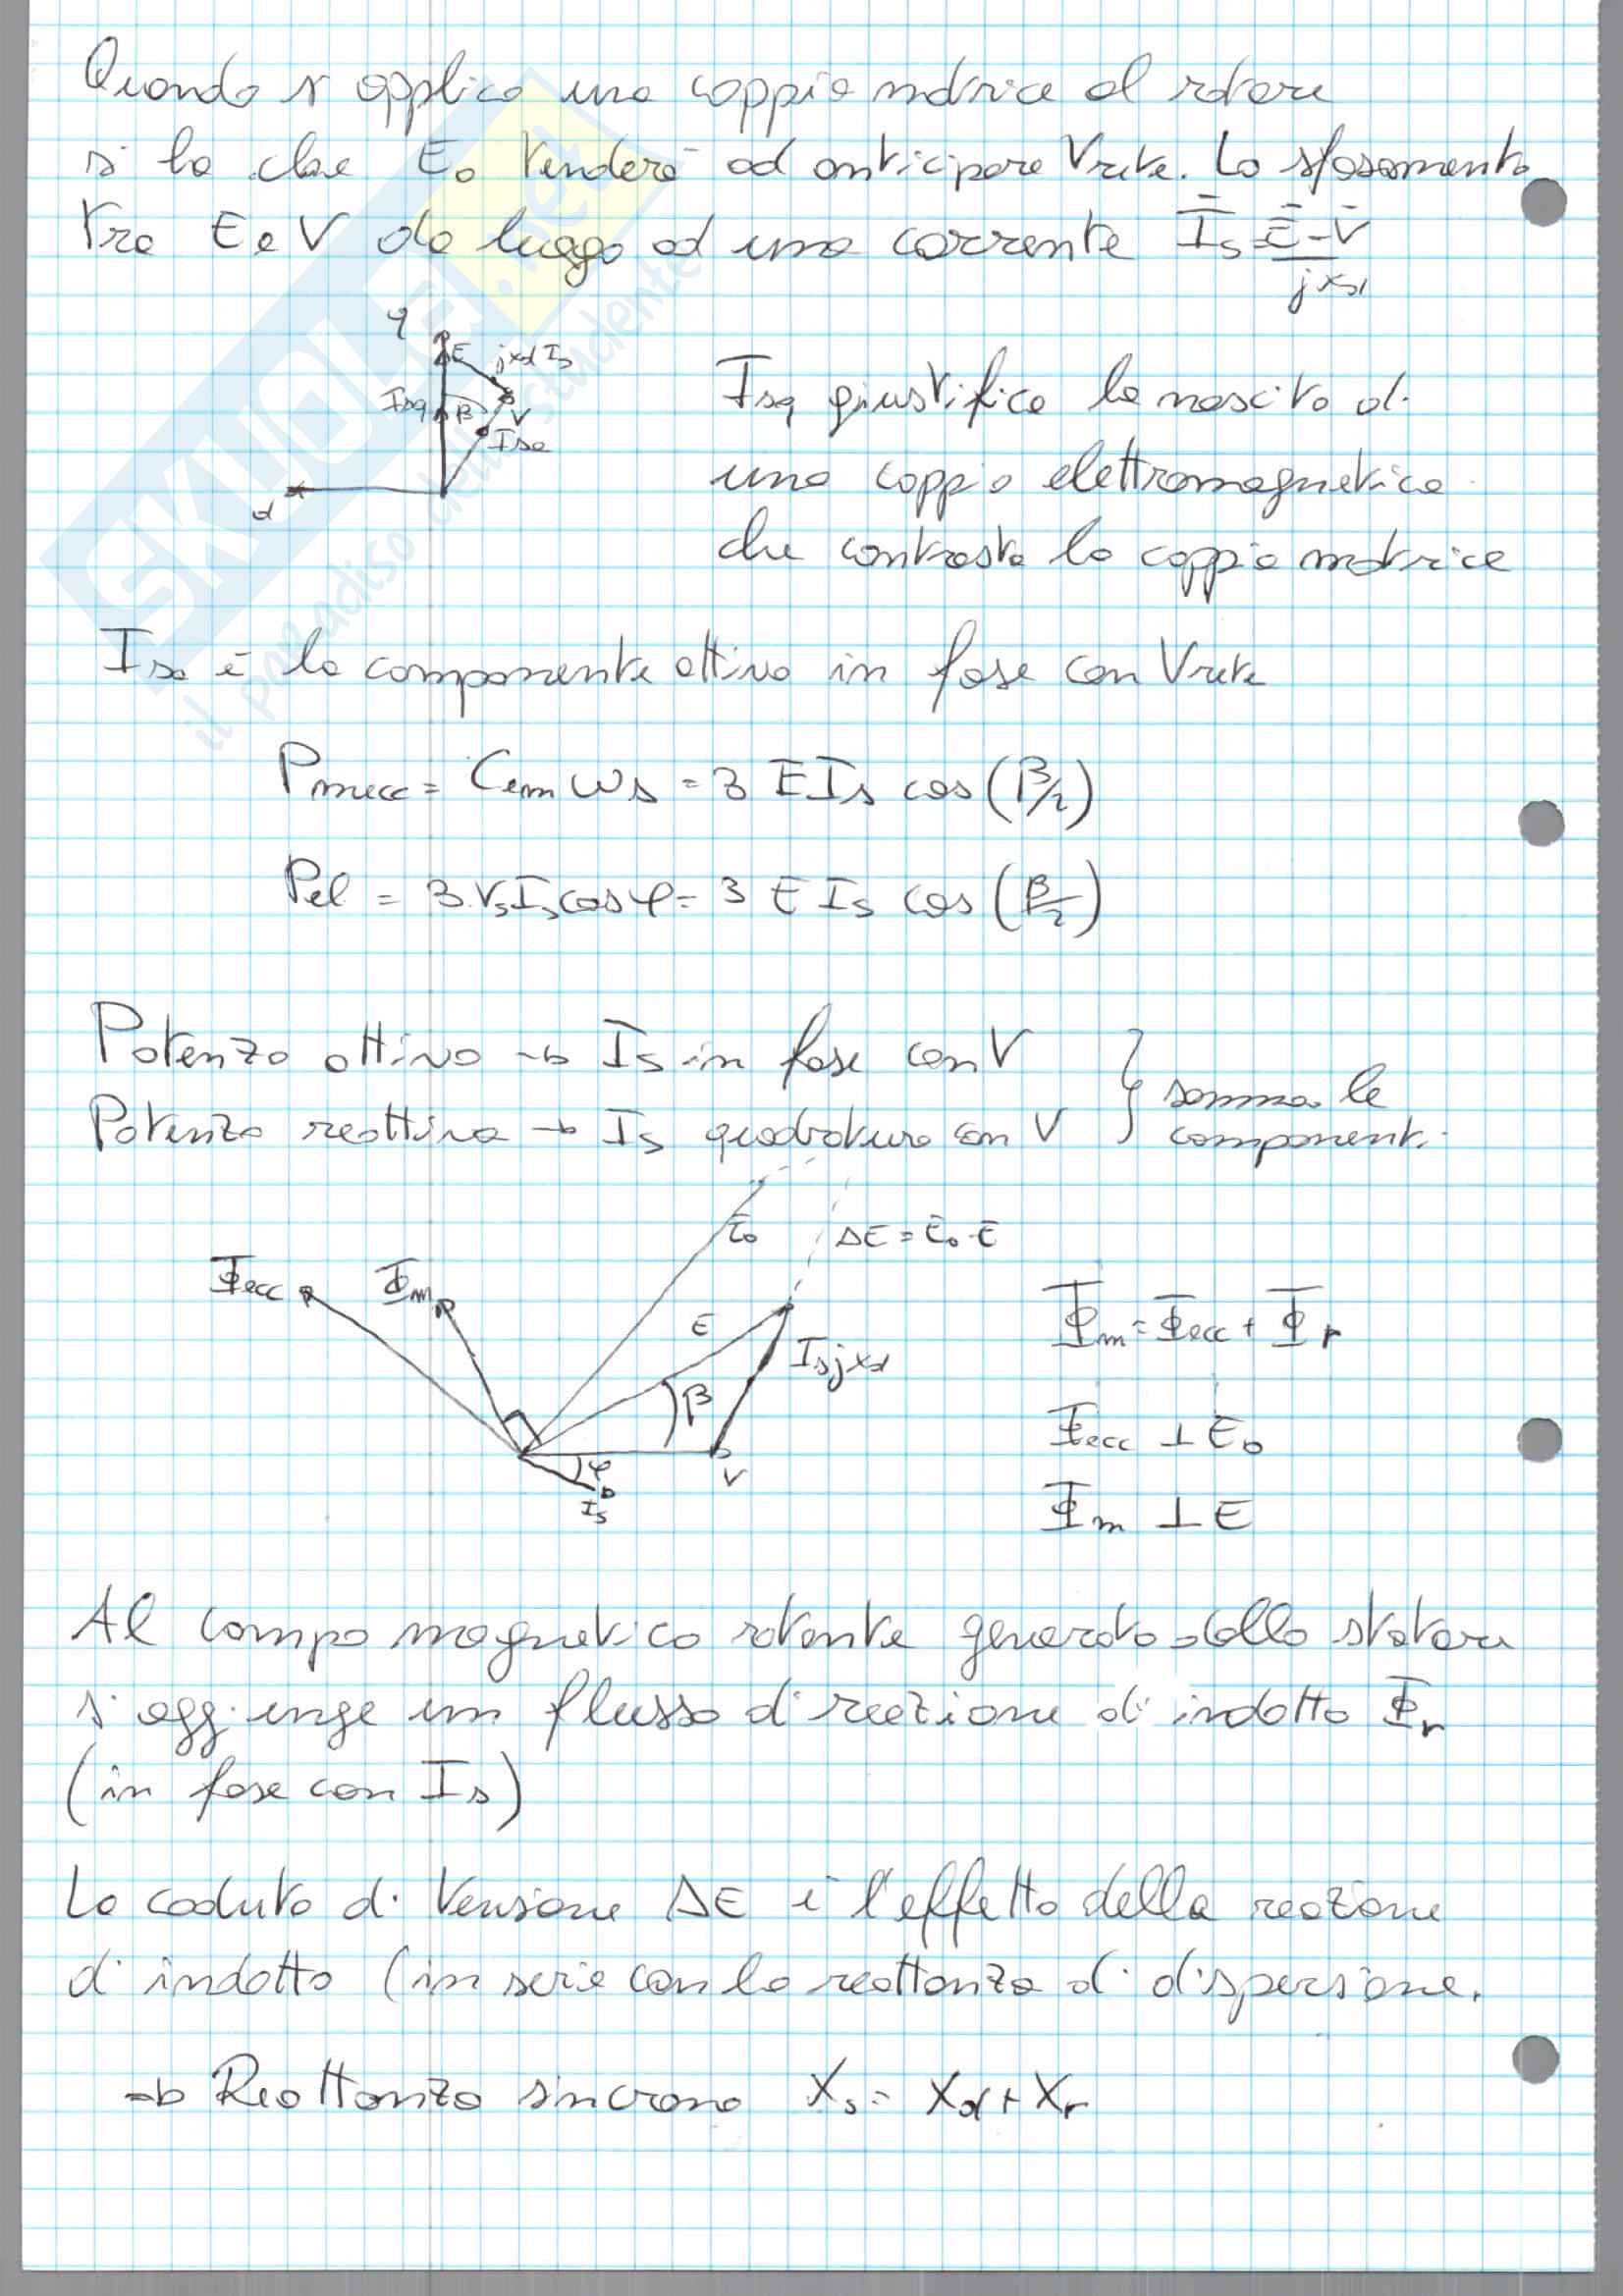 Quando si applica una coppia motrice al rotore
si ha che E₀ tenderà ad anticipare Vrete. Lo sfasamento
tra E e V da luogo ad una corrente Īs = (Ē - V̄) / jxd
q
E jxd Is
Isq β V
Isa
d
Isq giustifica la nascita di
una coppia elettromagnetica
che contrasta la coppia motrice
Isa è la componente attiva in fase con Vrete
Pmecc = Cem ωs = 3 E Is cos(β/2)
Pel = 3 Vs Is cosφ = 3 E Is cos(β/2)
Potenza attiva → Is in fase con V
Potenza reattiva → Is quadratura con V } somma le componenti
E̅₀ ΔE = E̅₀ - E̅
Φecc Φm
E
Is jxd
β
φ
V
Is
Φ̅m = Φ̅ecc + Φ̅r
Φecc ⊥ E₀
Φm ⊥ E
Al campo magnetico rotante generato dallo statore
si aggiunge un flusso di reazione di indotto Φr
(in fase con Is)
La caduta di tensione ΔE è l'effetto della reazione
di indotto (in serie con la reattanza di dispersione.
⇒ Reattanza sincrona Xs = Xd + Xr
SKUOLA.net
il paradiso dello studente